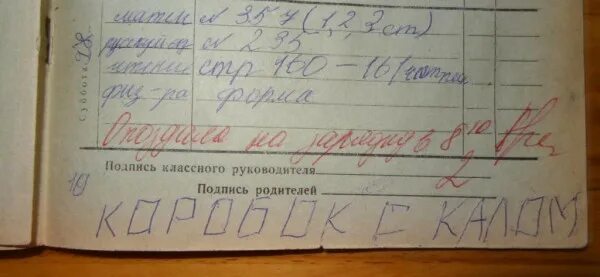 матем N 357 (1,2,3 ст)
русский яз N 235
Суббота
чтение стр 160 – 161 читать
физ-ра форма
Опоздала на зарядку в 8 10
Подпись классного руководителя
2
Подпись родителей
КОРОБОК С КАЛОМ